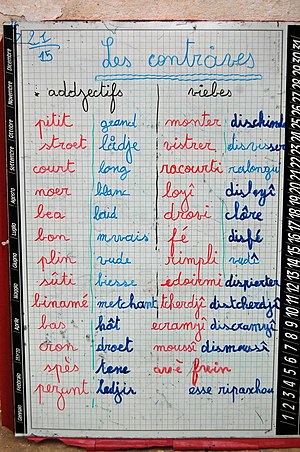 21
15
Les contråves
addjectifs viebes
pitit grand monter dischinde
stroet lådje vistrer disvisser
court long racourti ralongui
noer blanc loyî disloyî
bea laid drovi clôre
bon mwais fé disfé
plin vude rimpli vudî
sûti biesse edoirmi dispierter
binamé metchant tcherdjî distcherdjî
bas hôt ecramyî discramyî
cron droet moussî dismoussî
spès tene avè frwin
pezant ledjir esse ripaxhou
Decimbre
Novimbre
Octôbre
Setimbre
Juyete
1 2 3 4 5 6 7 8 9 10 11 12 13 14 15 16 17 18 19 20 21 22 23 24 25 26 27 28 29 30 31